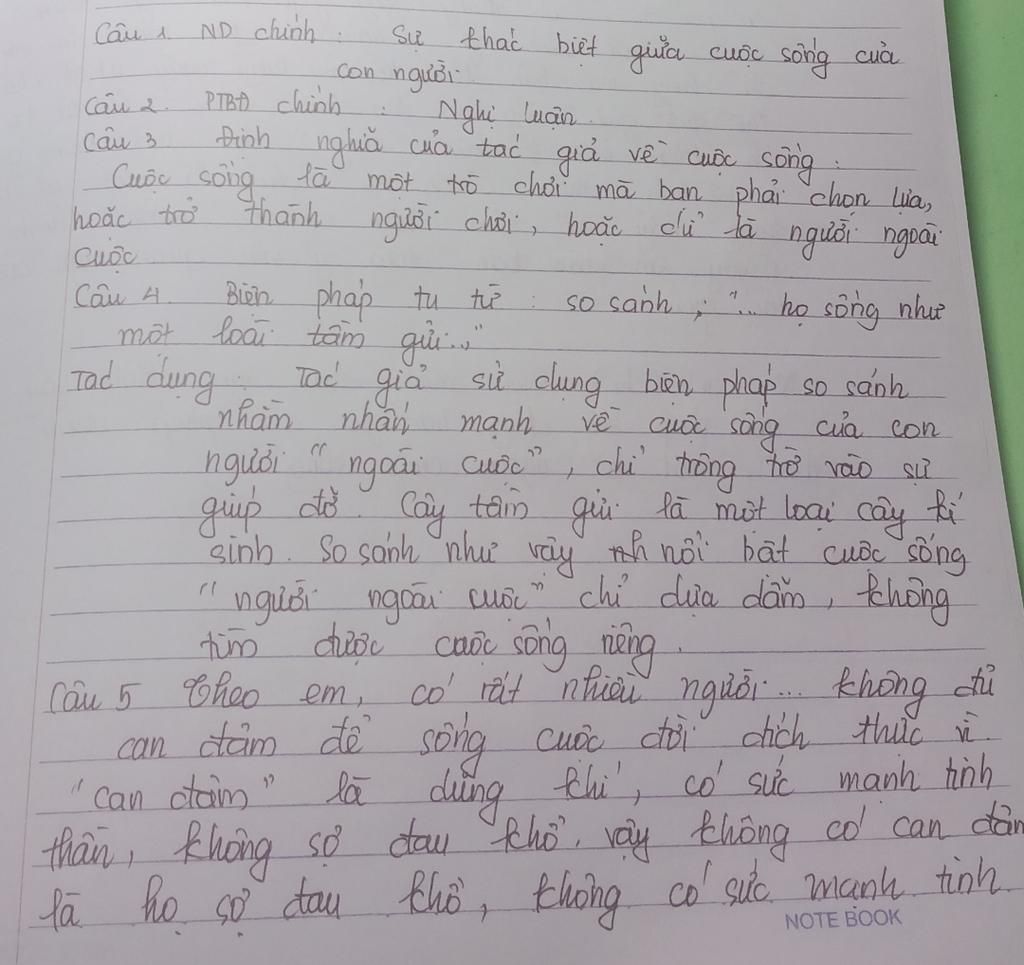 Câu 1. ND chính : Sự khác biệt giữa cuộc sống của
con người.
Câu 2. PTBĐ chính : Nghị luận.
Câu 3 Định nghiã của tác giả về cuộc sống :
Cuộc sống là một trò chơi mà bạn phải chọn lựa,
hoặc trở thành người chơi, hoặc cứ là người ngoài
cuộc
Câu 4. Biện pháp tu từ : so sánh ; "... họ sống như
một loài tầm gửi..,"
Tác dụng : Tác giả sử dụng biện pháp so sánh
nhằm nhấn mạnh về cuộc sống của con
người "ngoài cuộc", chỉ trông trờ vào sự
giúp đỡ. Cây tầm gửi là một loại cây kí
sinh. So sánh như vậy nổi bật cuộc sống
"người ngoài cuộc" chỉ dựa dẫm, không
tìm được cuộc sống riêng.
Câu 5 Theo em, có rất nhiều người... không đủ
can đảm để sống cuộc đời đích thực vì.
"can đảm" là dũng khí, có sức mạnh tinh
thần, không sợ đau khổ. vậy không có can đảm
là họ sợ đau khổ, không có sức mạnh tinh
NOTE BOOK